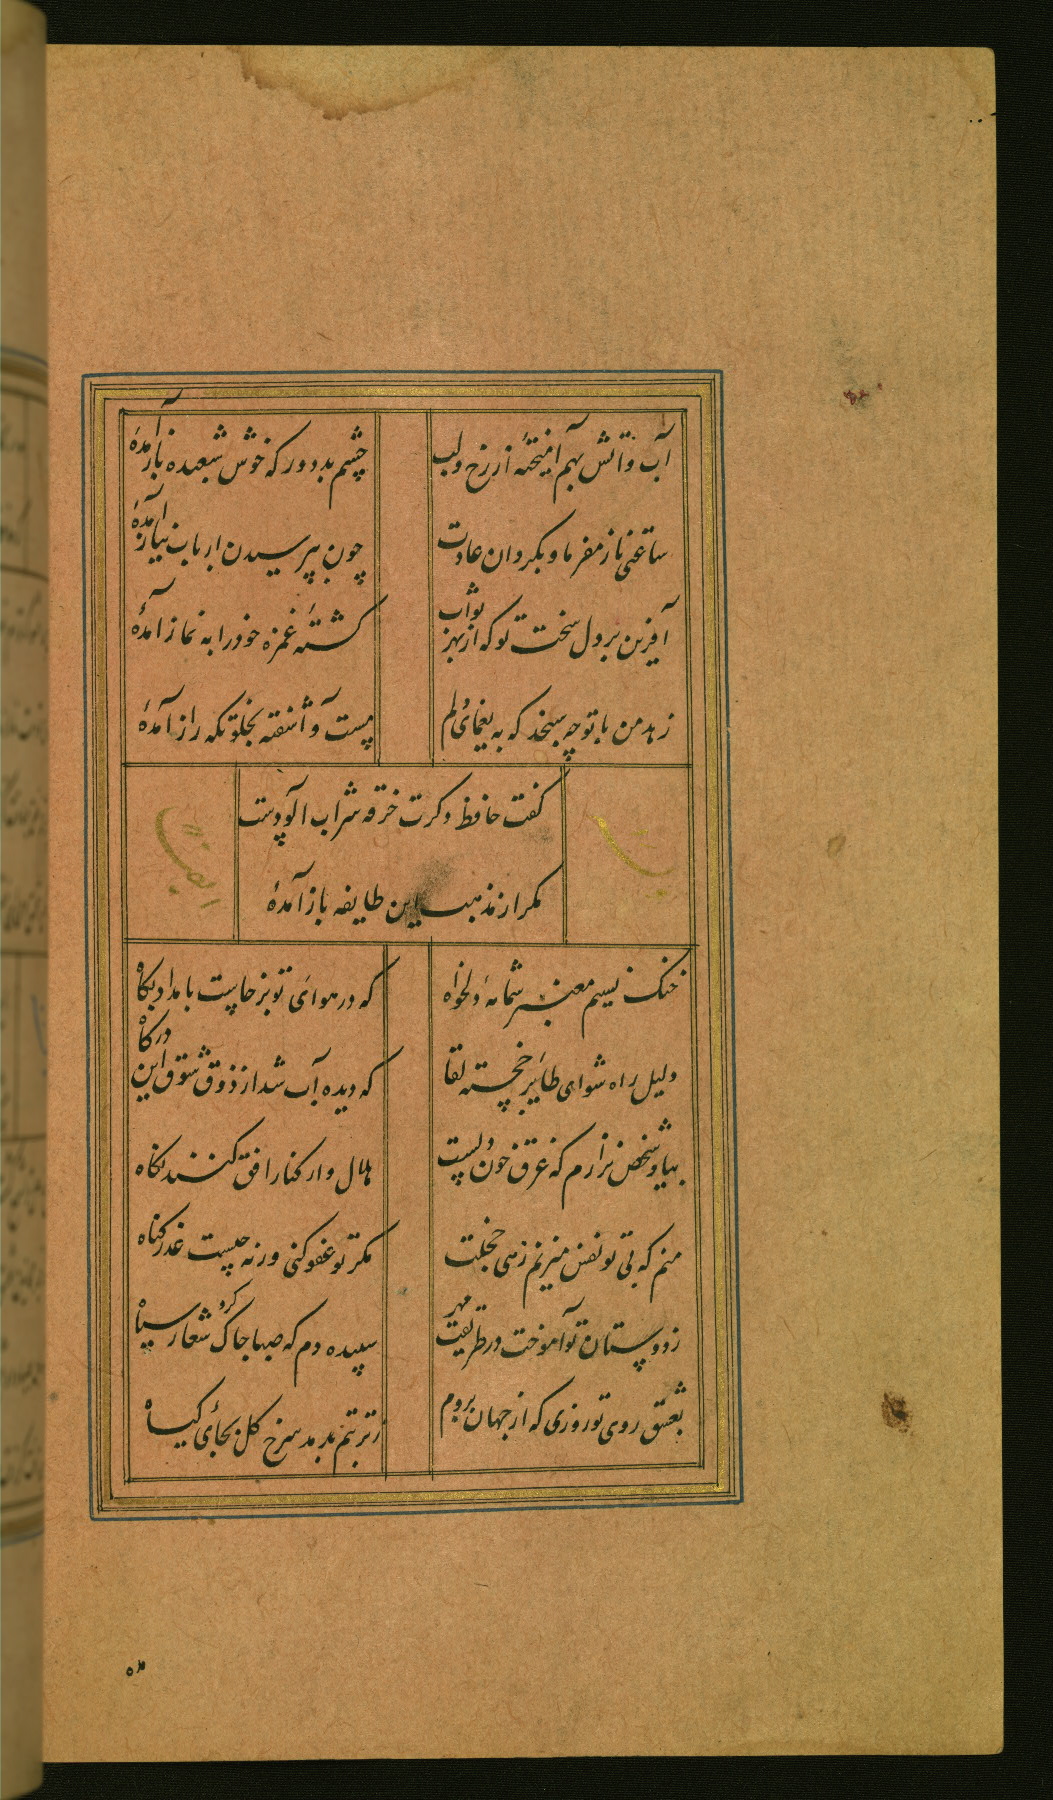 آب و آتش بهم آمیختهٔ از رخ و لب
چشم بد دور که خوش شعبده باز آمدهٔ
ساعتی ناز مفرما و بگردان عادت
چون بپرسیدن ارباب نیاز آمدهٔ
آفرین بر دل سخت تو که از بهر ثواب
کشتهٔ غمزه خود را به نماز آمدهٔ
زهد من با تو چه سنجد که به یغمای دلم
مست و آشفته بخلوتگه راز آمدهٔ
گفت حافظ دگرت خرقه شراب آلودست
مگر از مذهب این طایفه باز آمدهٔ
خنک نسیم معنبر شمامهٔ دلخواه
که در هوای تو برخاست بامداد بگاه
دلیل راه شو ای طایر خجسته لقا
که دیده آب شد از ذوق شوق این درگاه
بیاد شخص نزارم که غرق خون دلست
هلال وار کنار افق کنند نگاه
منم که بی تو نفس میزنم زهی خجلت
مگر تو عفو کنی ورنه چیست عذر گناه
ز دوستان تو آموخت در طریقت مهر
سپیده دم که صبا چاک کرد شعار سیاه
بعشق روی تو روزی که از جهان بروم
ز تربتم بدمد سرخ گل بجای گیاه